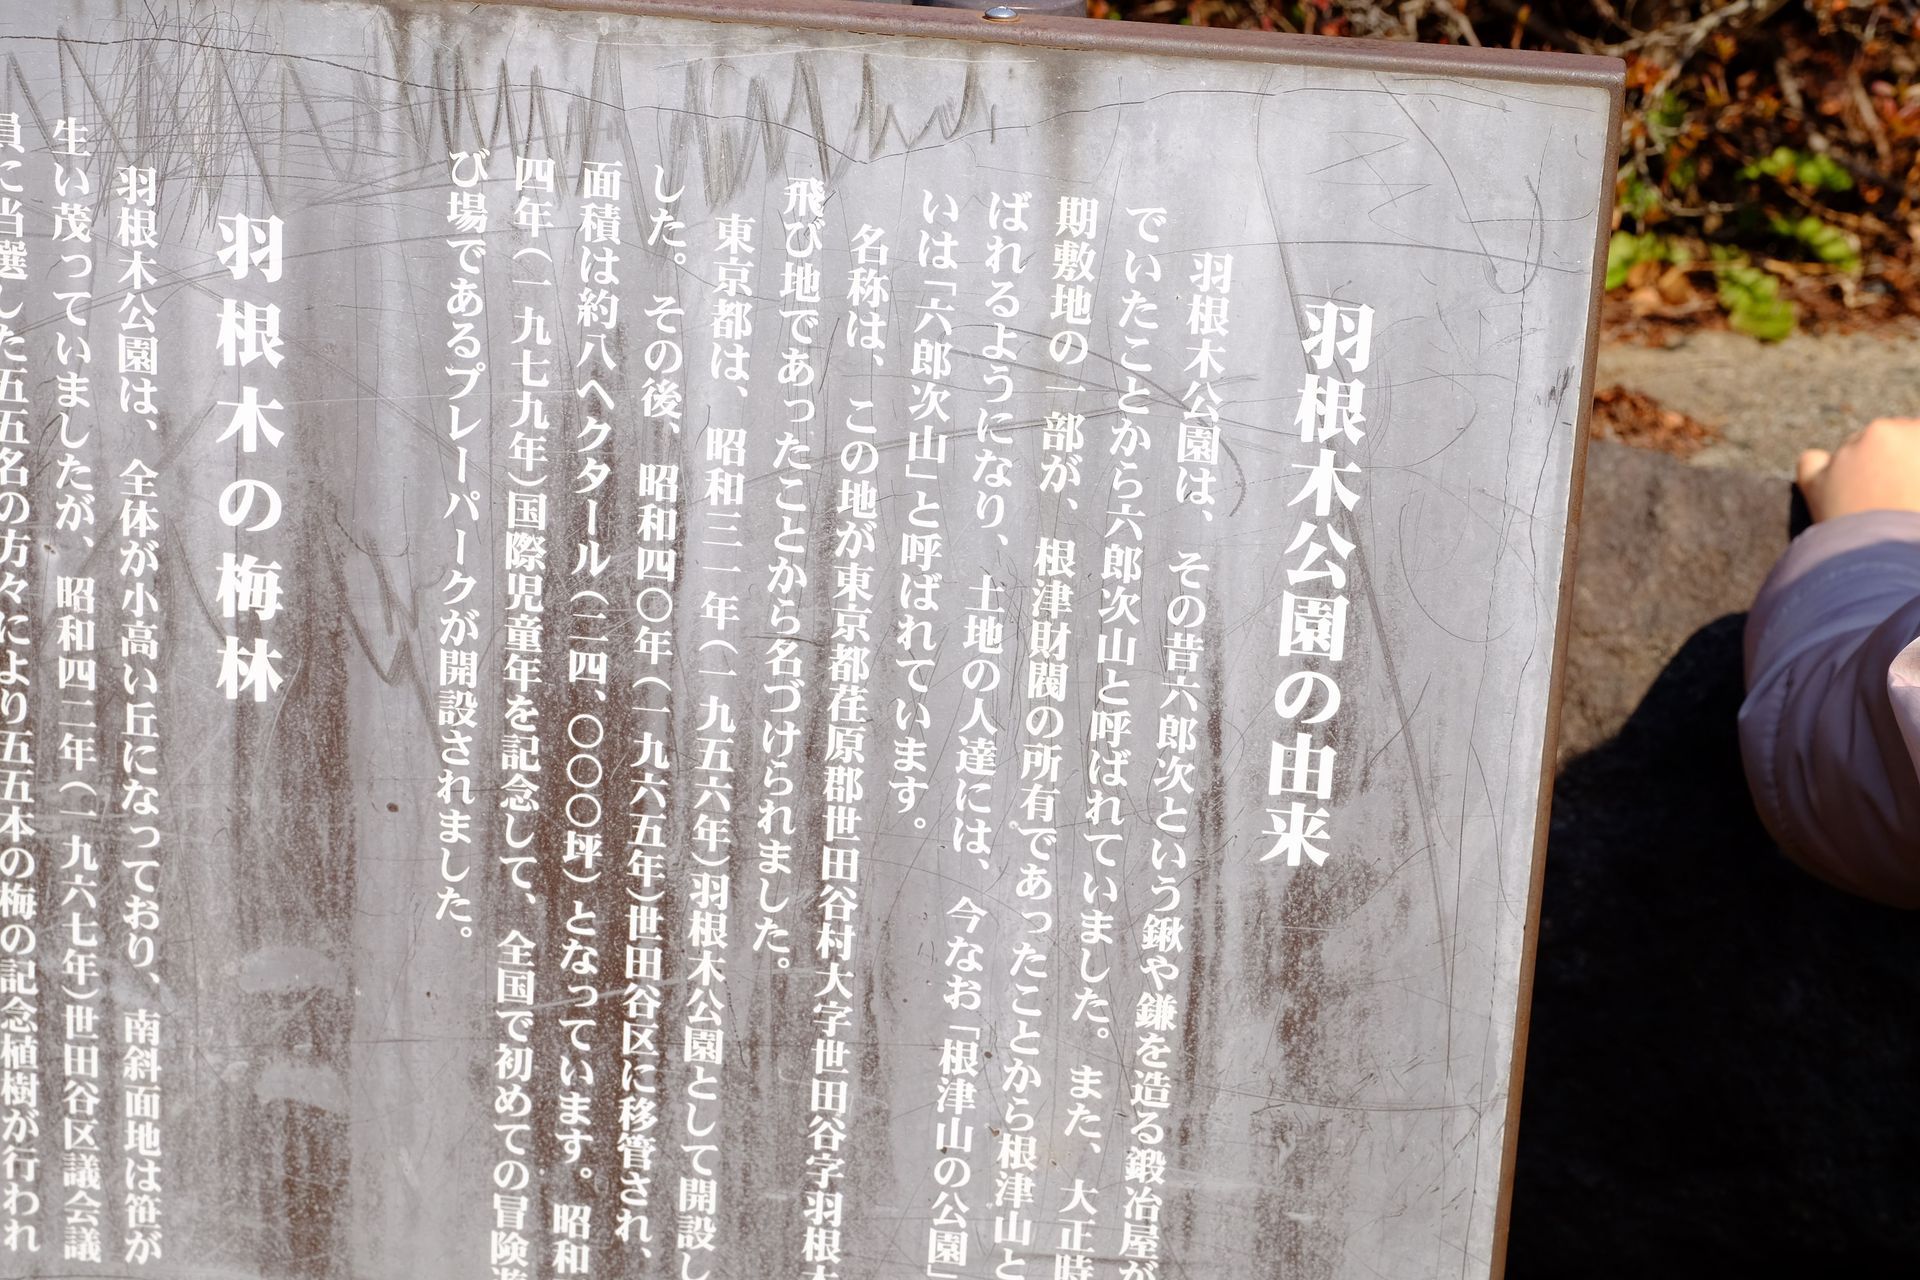 羽根木公園の由来
羽根木公園は、その昔六郎次という鍬や鎌を造る鍛冶屋が
でいたことから六郎次山と呼ばれていました。また、大正時
期敷地の一部が、根津財閥の所有であったことから根津山と
ばれるようになり、土地の人達には、今なお「根津山の公園」
いは「六郎次山」と呼ばれています。
名称は、この地が東京都荏原郡世田谷村大字世田谷字羽根木
飛び地であったことから名づけられました。
東京都は、昭和三一年（一九五六年）羽根木公園として開設し
した。その後、昭和四〇年（一九六五年）世田谷区に移管され、
面積は約八ヘクタール（二四、〇〇〇坪）となっています。昭和
四年（一九七九年）国際児童年を記念して、全国で初めての冒険遊
び場であるプレーパークが開設されました。
羽根木の梅林
羽根木公園は、全体が小高い丘になっており、南斜面地は笹が
生い茂っていましたが、昭和四二年（一九六七年）世田谷区議会議
員に当選した五五名の方々により五五本の梅の記念植樹が行われ